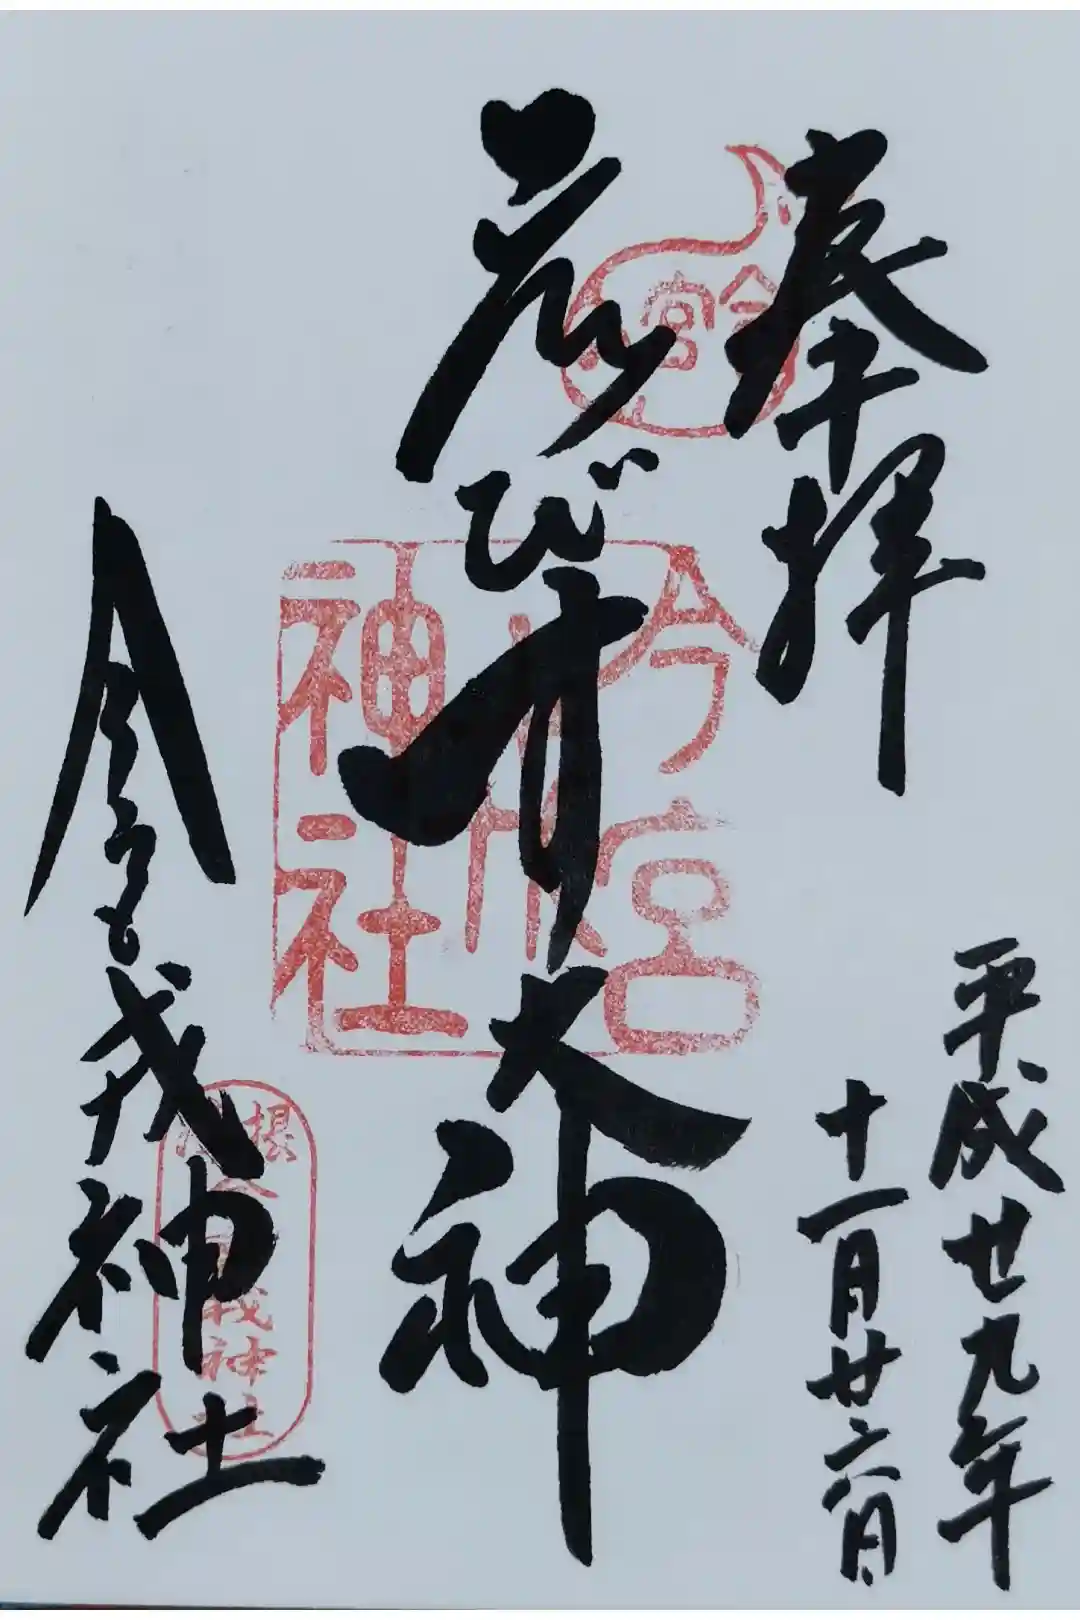 奉拝
平成廿九年
十一月廿六日
ゑびす大神
今宮戎神社
今宮
今宮戎神社
今宮戎神社